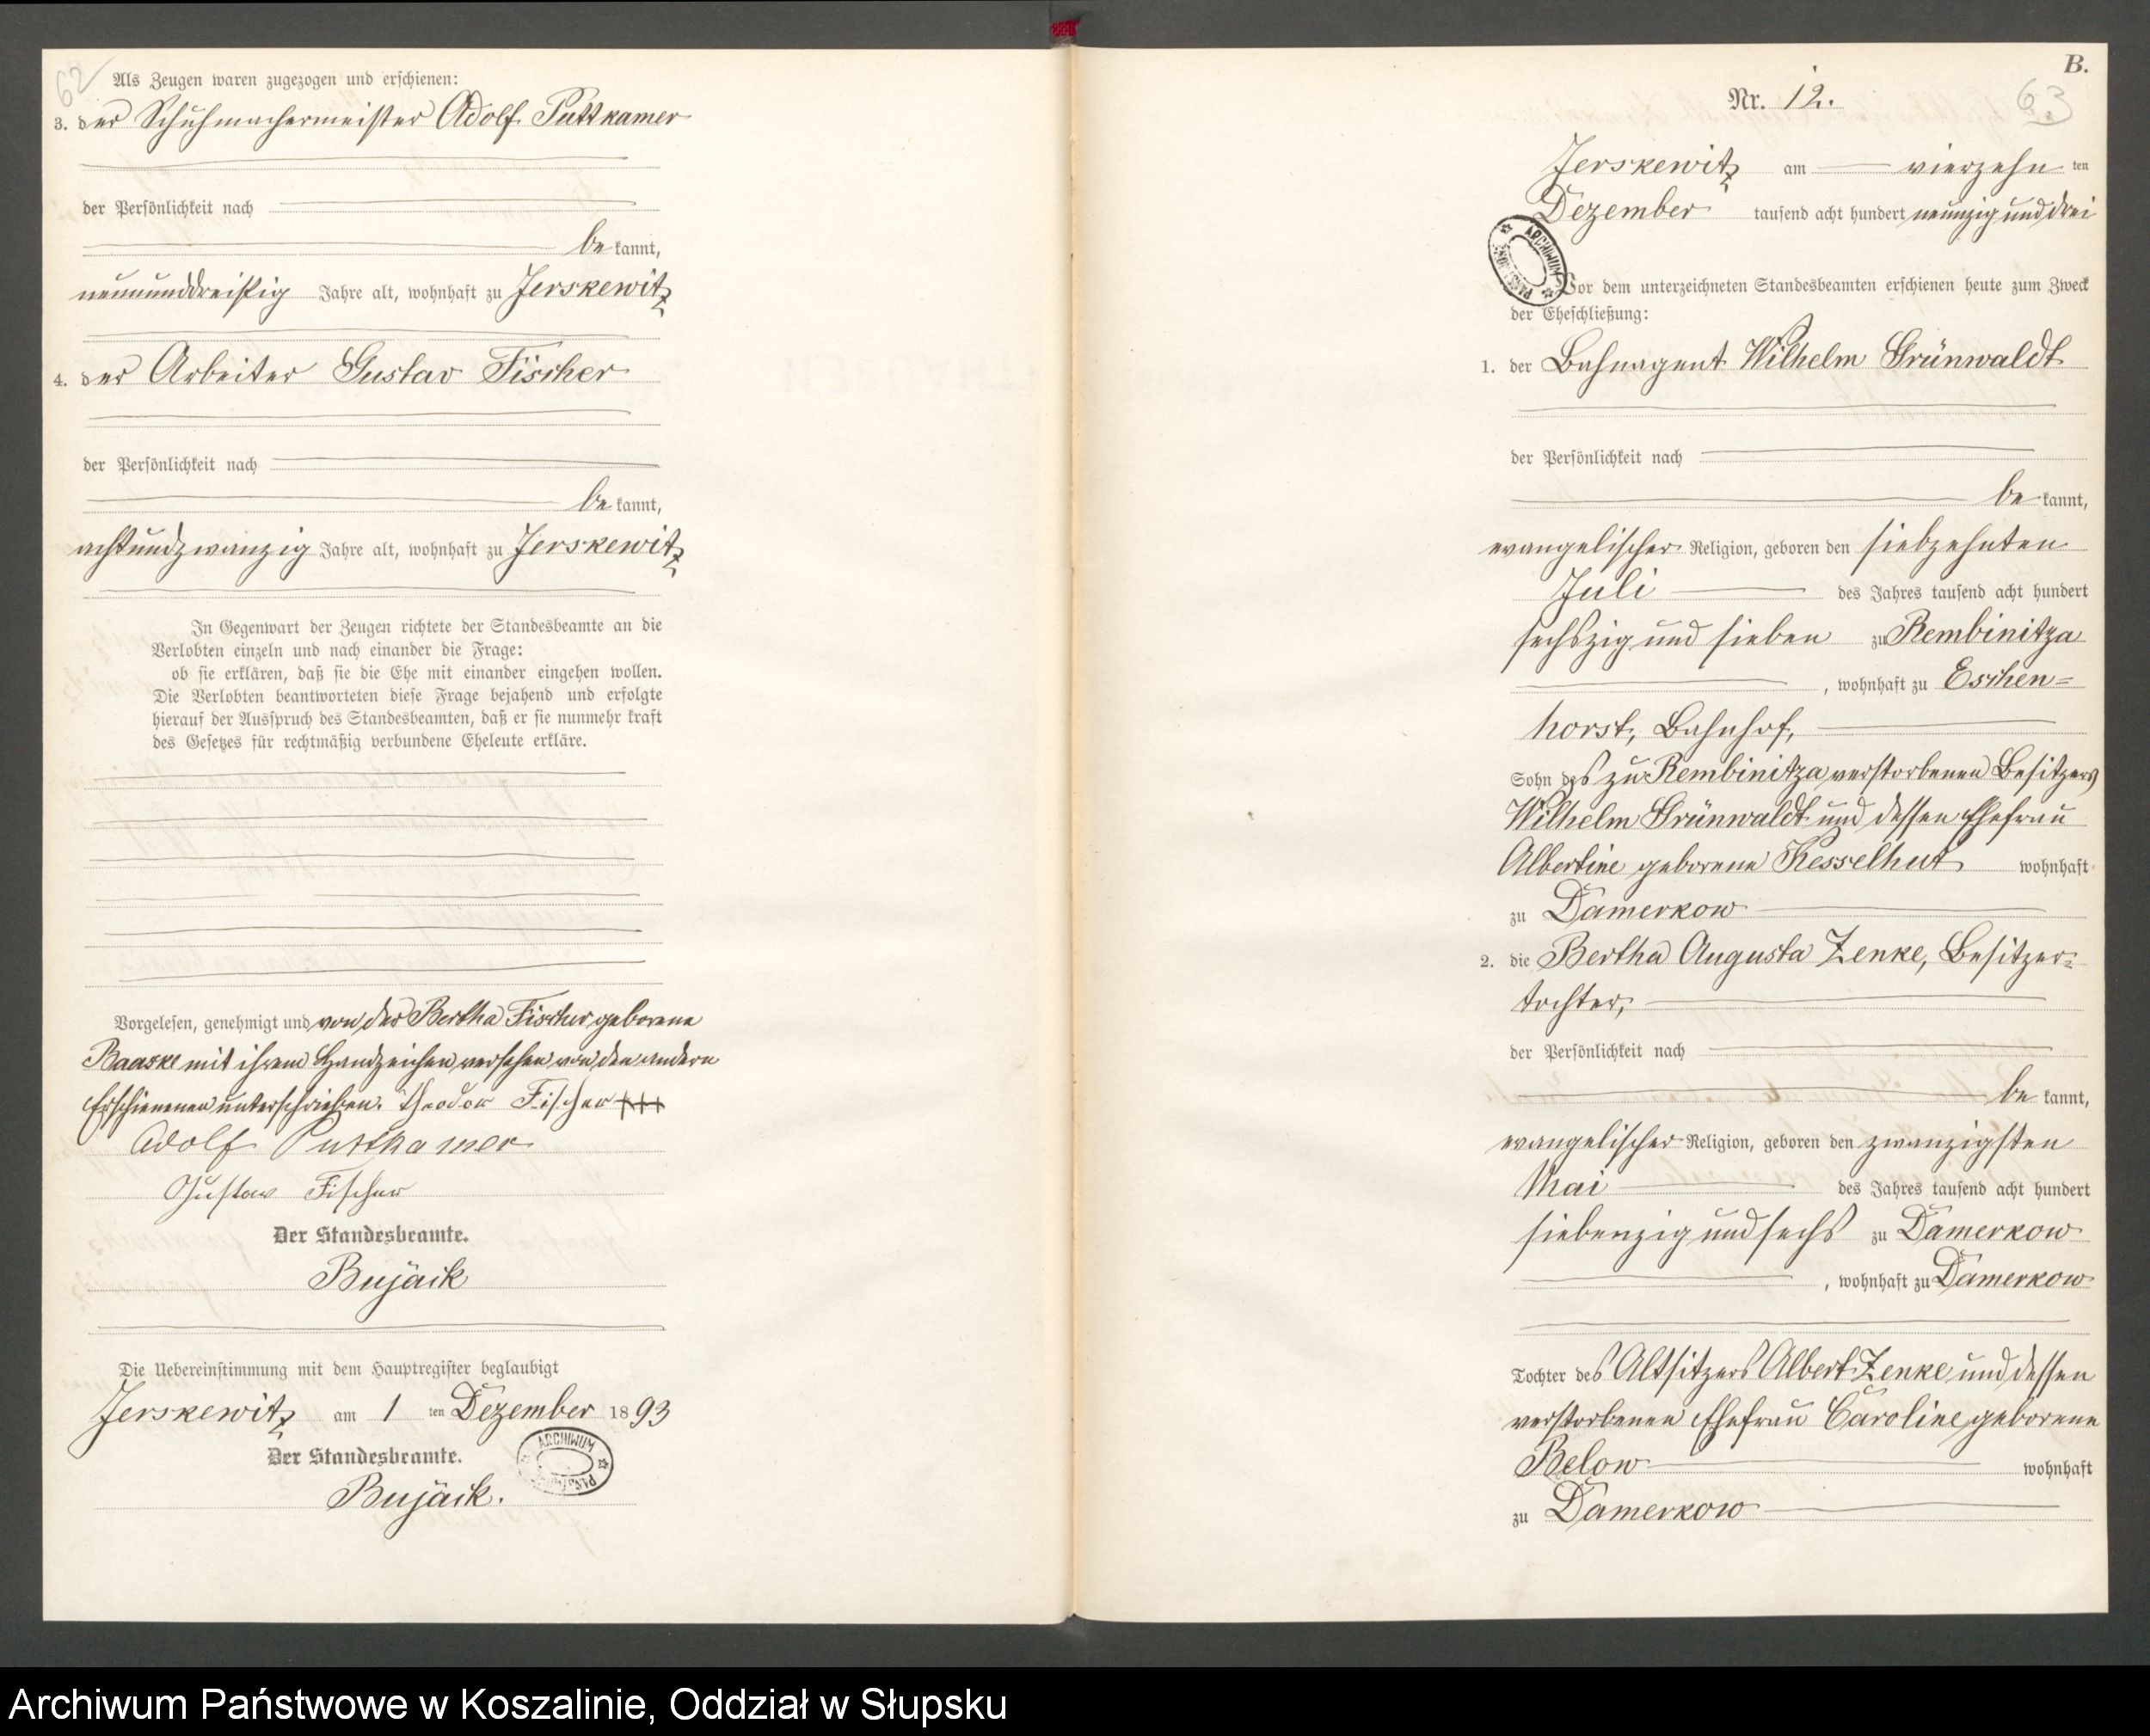 62
Als Zeugen waren zugezogen und erschienen:
3. der Schuhmachermeister Adolf Puttkamer
der Persönlichkeit nach
be kannt,
neununddreißig Jahre alt, wohnhaft zu Jerskewitz
4. der Arbeiter Gustav Fischer
der Persönlichkeit nach
be kannt,
achtundzwanzig Jahre alt, wohnhaft zu Jerskewitz
In Gegenwart der Zeugen richtete der Standesbeamte an die
Verlobten einzeln und nach einander die Frage:
ob sie erklären, daß sie die Ehe mit einander eingehen wollen.
Die Verlobten beantworteten diese Frage bejahend und erfolgte
hierauf der Ausspruch des Standesbeamten, daß er sie nunmehr kraft
des Gesetzes für rechtmäßig verbundene Eheleute erkläre.
Vorgelesen, genehmigt und von der Bertha Fischer geborene
Baaske mit ihrem Handzeichen versehen von den andern
Erschienenen unterschrieben. Theodor Fischer +++
Adolf Puttkamer
Gustav Fischer
Der Standesbeamte.
Bujack
Die Uebereinstimmung mit dem Hauptregister beglaubigt
Jerskewitz am 1 ten Dezember 1893
Der Standesbeamte.
Bujack.
ARCHIWUM
B.
Nr. 12.
63
Jerskewitz am vierzehn ten
Dezember tausend acht hundert neunzig und drei
ARCHIWUM
Vor dem unterzeichneten Standesbeamten erschienen heute zum Zweck
der Eheschließung:
1. der Bahnagent Wilhelm Grünwaldt
der Persönlichkeit nach
be kannt,
evangelischer Religion, geboren den siebzehnten
Juli des Jahres tausend acht hundert
sechszig und sieben zu Rembinitza
, wohnhaft zu Eschen=
horst, Bahnhof,
Sohn des zu Rembinitza verstorbenen Besitzers
Wilhelm Grünwaldt und dessen Ehefrau
Albertine geborene Kesselhut wohnhaft
zu Damerkow
2. die Bertha Augusta Zenke, Besitzer=
tochter,
der Persönlichkeit nach
be kannt,
evangelischer Religion, geboren den zwanzigsten
Mai des Jahres tausend acht hundert
siebenzig und sechs zu Damerkow
, wohnhaft zu Damerkow
Tochter des Altsitzers Albert Zenke und dessen
verstorbenen Ehefrau Caroline geborene
Below wohnhaft
zu Damerkow
Archiwum Państwowe w Koszalinie, Oddział w Słupsku